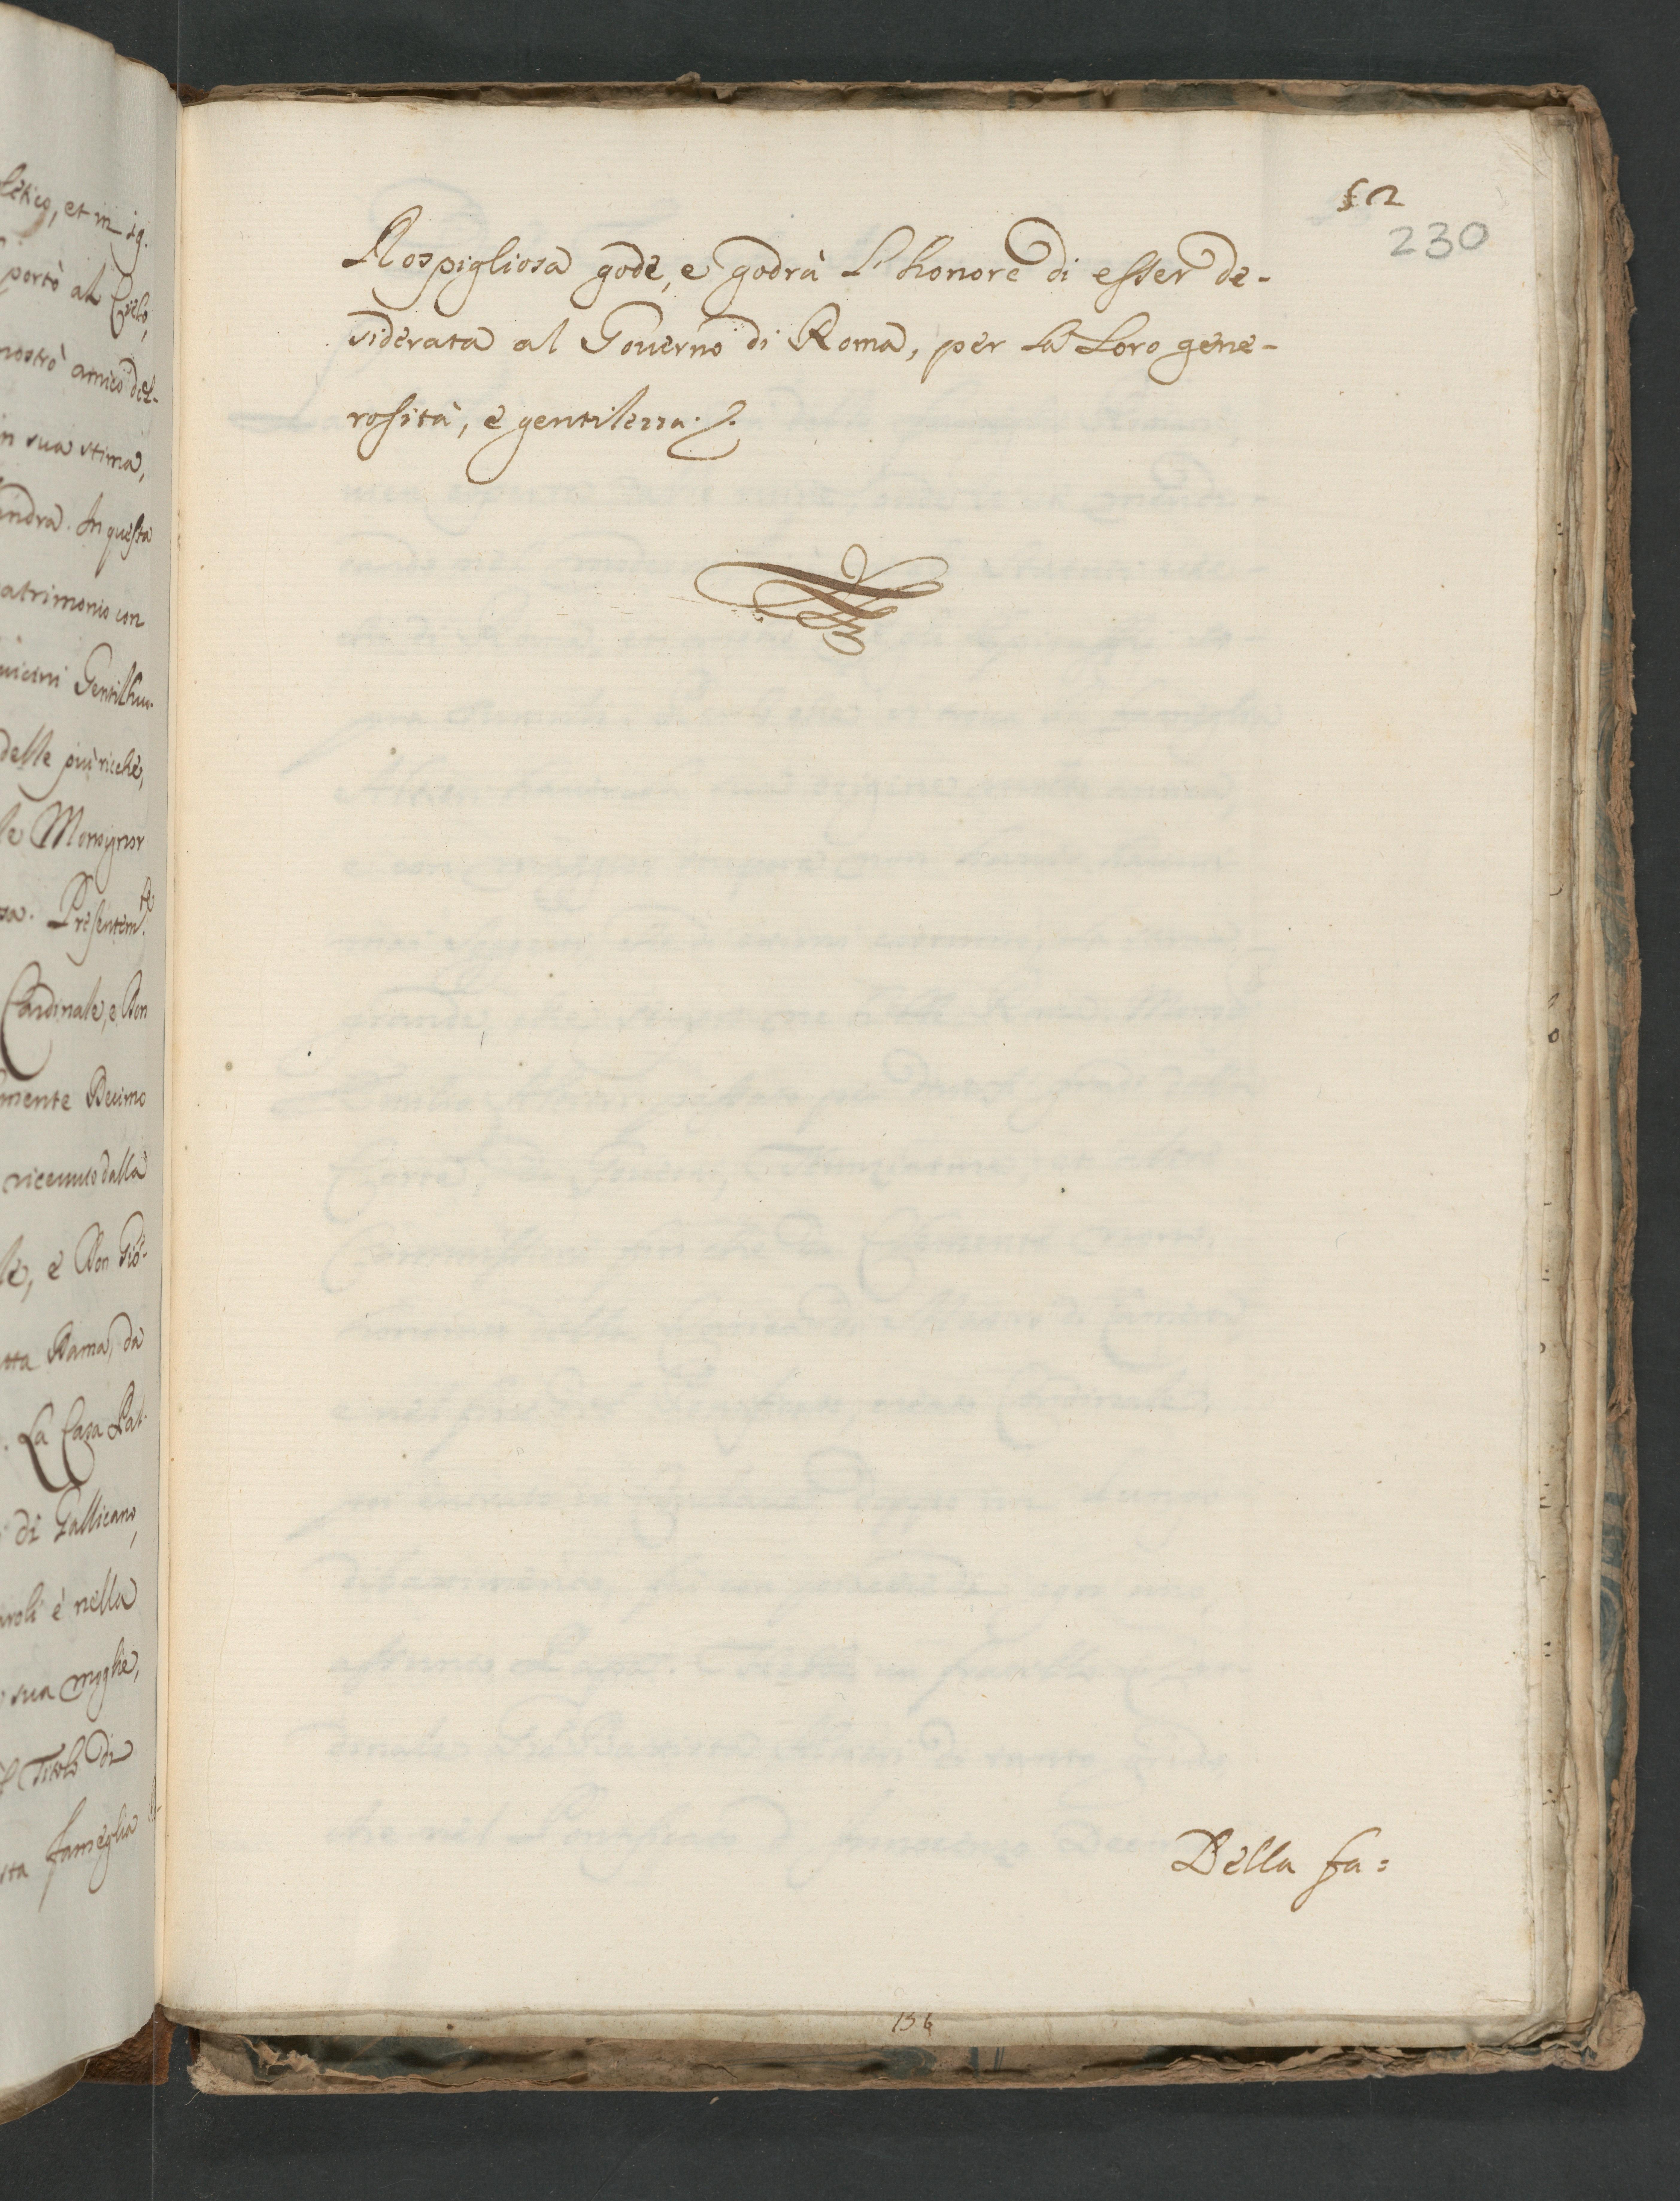 letico, et in ig.
portò al Cielo,
mostrò amico del-
in sua stima,
andra. In questa
atrimonio con
vicini Gentilhuo-
delle più ricche,
le Monsignor
sa. Presentemte.
Cardinale, e Don
mente Decimo
ricevuto dalla
le, e Don Gio-
tta Dama, da
. La Casa Pal-
di Gallicano,
aroli è nella
sua moglie,
il Titolo di
sta fameglia
52
230
Rospigliosa gode, e godrà l'honore di esser de-
siderata al Gouerno di Roma, per la loro gene-
rosità, e gentilezza.
Della fa:
136